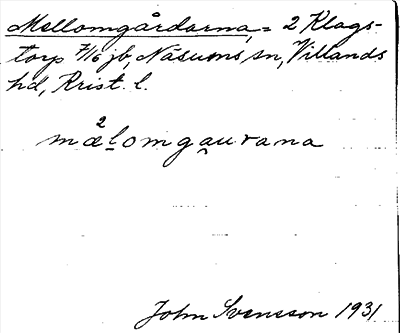 Mellomgårdarna, = 2 Klags-
torp 7/16 jb, Näsums sn, Villands
hd, Krist. l.
2
mælomgau̯rana
John Svensson 1931